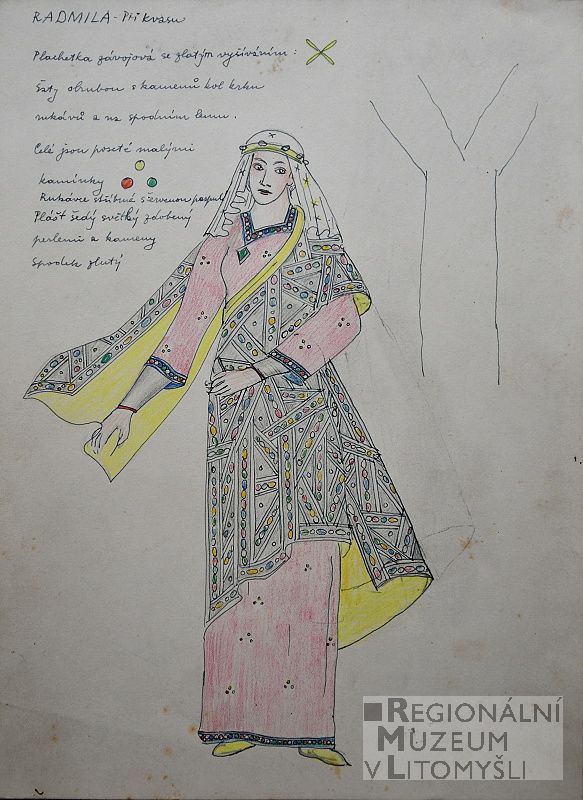 RADMILA - Při kvasu
Plachetka závojová se zlatým vyšíváním :
Šaty obrubou s kamenů kol krku
rukávů a na spodním lemu.
Celé jsou poseté malými
kamínky
Rukávce stříbrné s červenou paspulí
Plášť šedý světlý zdobený
perlemi a kameny
Spodek žlutý
REGIONÁLNÍ
MUZEUM
V LITOMYŠLI